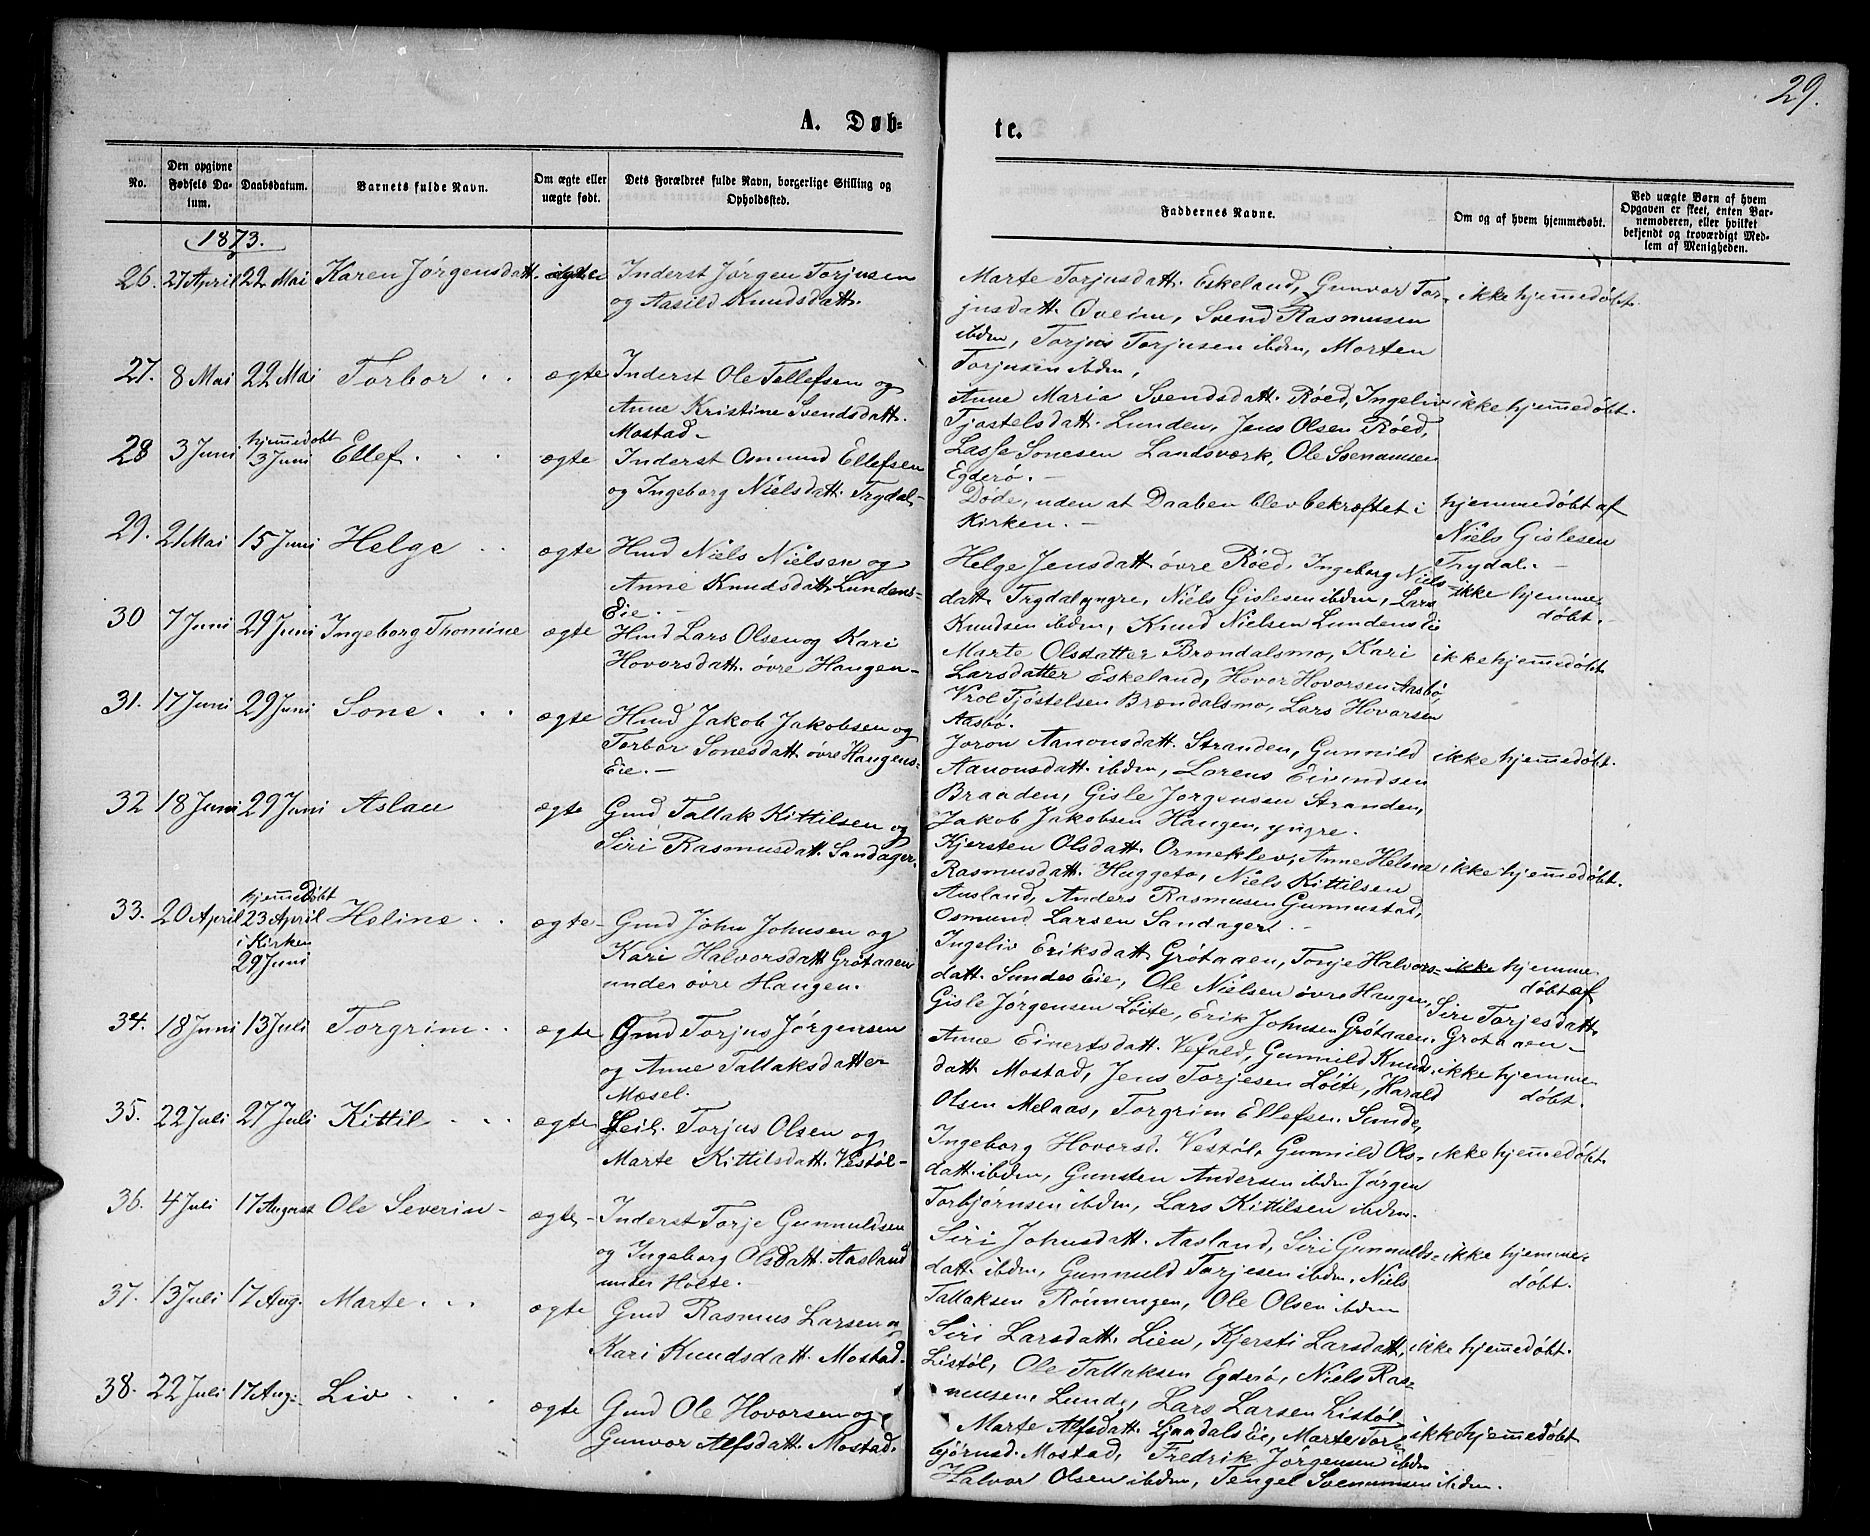 29.
A. Døb-
te.
No.
Den opgivne Fødsels Da-
tum.
Daabsdatum.
Barnets fulde Navn.
Om ægte eller
uægte født.
Dets Forældres fulde Navn, borgerlige Stilling og
Opholdssted.
Faddernes Navne.
Om og af hvem hjemmedøbt.
Ved uægte Børn af hvem
Opgaven er skeet, enten Bar-
nemoderen, eller hvilket
bekjendt og troværdigt Med-
lem af Menigheden.
1873.
26. 27 April 22 Mai Karen Jørgensdatt. ægte
Inderst Jørgen Torjusen
og Aasild Knudsdatt.
Marte Torjusdatt. Eskeland, Gunvor Tor-
jusdatt. Qveim, Svend Rasmusen
ibdm, Torjus Torjusen ibdm, Morten
Torjusen ibdm,
ikke hjemmedøbt.
27. 8 Mai 22 Mai Torbor . . ægte
Inderst Ole Tellefsen og
Anne Kristine Svendsdatt.
Mostad-
Anne Maria Svendsdatt. Røed, Ingeliv
Tjostelsdatt. Lunden, Jens Olsen Røed,
Lasse Sonesen Landsværk, Ole Svenumsen
Egderø. -
ikke hjemmedøbt.
28 3 Juni hjemmedøbt
3 Juni Ellef. . . ægte
Inderst Osmund Ellefsen
og Ingeborg Nielsdatt. Trydal-
Døde, uden at Daaben blev bekræftet i
Kirken. -
hjemmedøbt af
Niels Gislesen
Trydal. -
29. 21 Mai 15 Juni Helge . . ægte
Hmd Niels Nielsen og
Anne Knudsdatt. Lundens-
Eie. -
Helge Jensdatt øvre Røed, Ingeborg Niels-
datt. Trydal yngre, Niels Gislesen ibdm, Lars
Knudsen ibdm, Knud Nielsen Lundens Eie
ikke hjemme-
døbt.
30 7 Juni 29 Juni Ingeborg Thomine ægte
Hmd Lars Olsen og Kari
Hovorsdatt. øvre Haugen-
Marte Olsdatter Brændalsmo, Kari
Larsdatter Eskeland, Hovor Hovorsen Aasbø
Vrol Tjøstelsen Brændalsmo, Lars Hovorsen
Aasbø.
ikke hjemmedøbt
31. 17 Juni 29 Juni Sone . . . ægte
Hmd Jakob Jakobsen og
Torbor Sonesdatt. øvre Haugens-
Eie. -
Joron Aanonsdatt. Stranden, Gunnild
Aanonsdatt. ibdm, Lorens Eivindsen
Braaden, Gisle Jørgensen Stranden,
Jakob Jakobsen Haugen, yngre.
ikke hjemmedøbt.
32 18 Juni 29 Juni Aslau ægte
Gmd Tallak Kittilsen og
Siri Rasmusdatt. Sandager.
Kjersten Olsdatt. Ormeklev, Anne Helene
Rasmusdatt. Huggeto, Niels Kittilsen
Ausland, Anders Rasmusen Gunnustad,
Osmund Larsen Sandager. -
ikke hjemmedøbt.
33. 20 April hjemmedøbt
23 April
i Kirken
29 Juni Heline . . ægte-
Gmd John Johnsen og
Kari Halvorsdatt Grøtaaen
under øvre Haugen.
Ingeliv Eriksdatt Grøtaaen, Tonje Halvors-
datt. Sundes Eie, Ole Nielsen øvre Haugen,
Gisle Jørgensen Løite, Erik Johnsen Grøtaaen.
ikke hjemme-
døbt af
Siri Torjesdatt.
Grøtaaen-
34. 18 Juni 13 Juli Torgrim. . . ægte
Gmd Torjus Jørgensen
og Anne Tallaksdatter
Mæsel.
Anne Einertsdatt. Vefald, Gunnild Knuds-
datt. Mostad, Jens Torjesen Løite, Harald
Olsen Melaas, Torgrim Ellefsen Sunde,
ikke hjemme-
døbt.
35. 22 Juli 27 Juli Kittil . . . ægte
Leil. Torjus Olsen og
Marte Kittilsdatt. Vestøl-
Ingeborg Hovorsd. Vestøl, Gunnild Ols-
datt. ibdm, Gunsten Andersen ibdm Jørgen
Torbjørnsen ibdm, Lars Kittilsen ibdm.
ikke hjemmedøbt
36. 4 Juli 17 August Ole Severin- ægte-
Inderst Torje Gunnuldsen
og Ingeborg Olsdatt. Aasland
under Holte.
Siri Johnsdatt. Aasland, Siri Gunnulds-
datt. ibdm, Gunnuld Torjesen ibdm, Niels
Tallaksen Røiningen, Ole Olsen ibdm
ikke hjemme-
døbt.
37. 13 Juli 17 Aug. Marte. . . ægte
Gmd Rasmus Larsen og
Kari Knudsdatt. Mostad.
Siri Larsdatt. Lien, Kjersti Larsdatt.
Listøl, Ole Tallaksen Egderø, Niels Ras-
musen Lund, Lars Larsen Listøl
ikke hjemmedøbt.
38. 22 Juli 17 Aug. Liv . . ægte
Gmd Ole Hovorsen og
Gunvor Alfsdatt. Mostad.
Marte Alfsdatt. Ljaadals Eie, Marte Tor-
bjørnsd. Mostad, Fredrik Jørgensen ibdm
Halvor Olsen ibdm, Tengel Svenumsen ibdm.
ikke hjemmedøbt